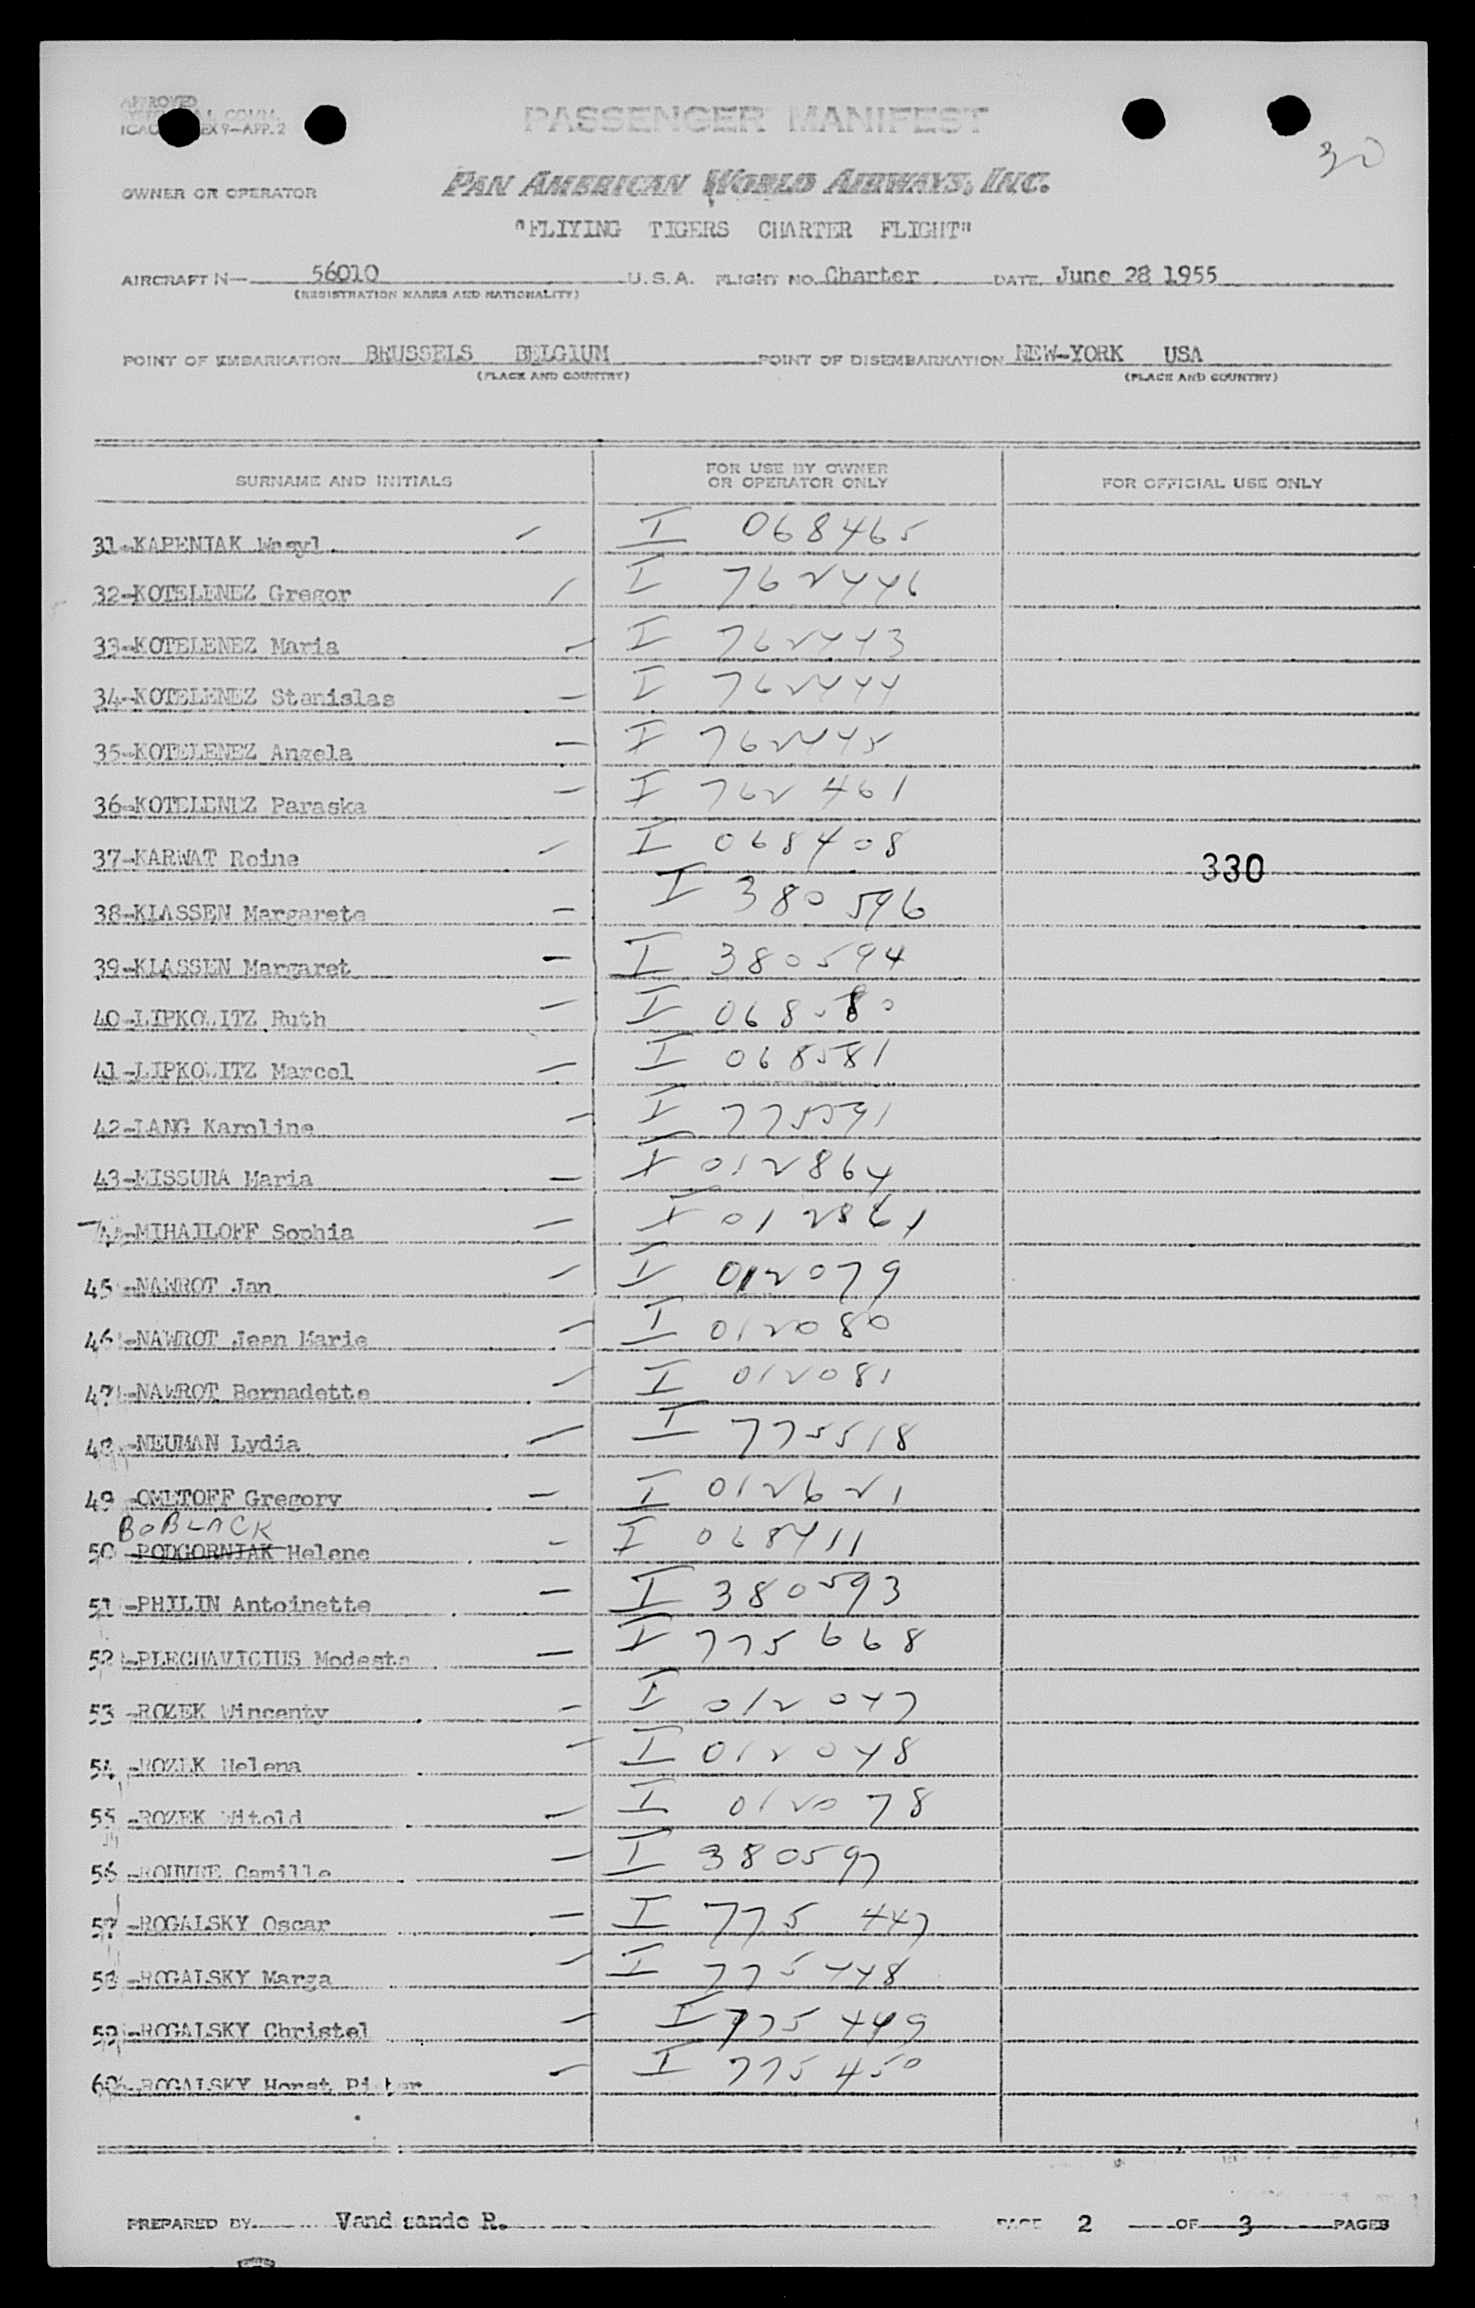 APPROVED
ICAO EX 9-APP. 2
PASSENGER MANIFEST
30
OWNER OR OPERATOR PAN AMERICAN WORLD AIRWAYS, INC.
"FLIYING TIGERS CHARTER FLIGHT"
AIRCRAFT N- 56010 U.S.A. FLIGHT NO. Charter DATE June 28 1955
(REGISTRATION MARKS AND NATIONALITY)
POINT OF EMBARKATION BRUSSELS BELGIUM POINT OF DISEMBARKATION NEW-YORK USA
(PLACE AND COUNTRY) (PLACE AND COUNTRY)
SURNAME AND INITIALS FOR USE BY OWNER OR OPERATOR ONLY FOR OFFICIAL USE ONLY
31-KAPENIAK Wasyl I 068465
32-KOTELENEZ Gregor I 762446
33-KOTELENEZ Maria I 762443
34-KOTELENEZ Stanislas I 762444
35-KOTELENEZ Angela I 762445
36-KOTELENEZ Paraska I 762 461
37-KARWAT Reine I 068408 330
38-KLASSEN Margarete I 380 596
39-KLASSEN Margaret I 380594
40-LIPKOWITZ Ruth I 068580
41-LIPKOWITZ Marcel I 068581
42-LANG Karoline I 775591
43-MISSURA Maria I 012864
44-MIHAILOFF Sophia I 012861
45-NAWROT Jan I 012079
46-NAWROT Jean Marie I 012080
47-NAWROT Bernadette I 012081
48-NEUMAN Lydia I 775518
49-OMETOFF Gregory I 012621
BOBLACK
50-PODGORNIAK Helene I 068411
51-PHILIN Antoinette I 380593
52-PLECHAVICIUS Modesta I 775668
53-ROZEK Wincenty I 012047
54-ROZEK Helena I 012048
55-ROZEK Witold I 012078
56-ROUVRE Camille I 380597
57-ROGALSKY Oscar I 775 447
58-ROGALSKY Marga I 775448
59-ROGALSKY Christel I 775 449
60-ROGALSKY Horst Pieter I 775450
PREPARED BY Vand sande R. PAGE 2 OF 3 PAGES